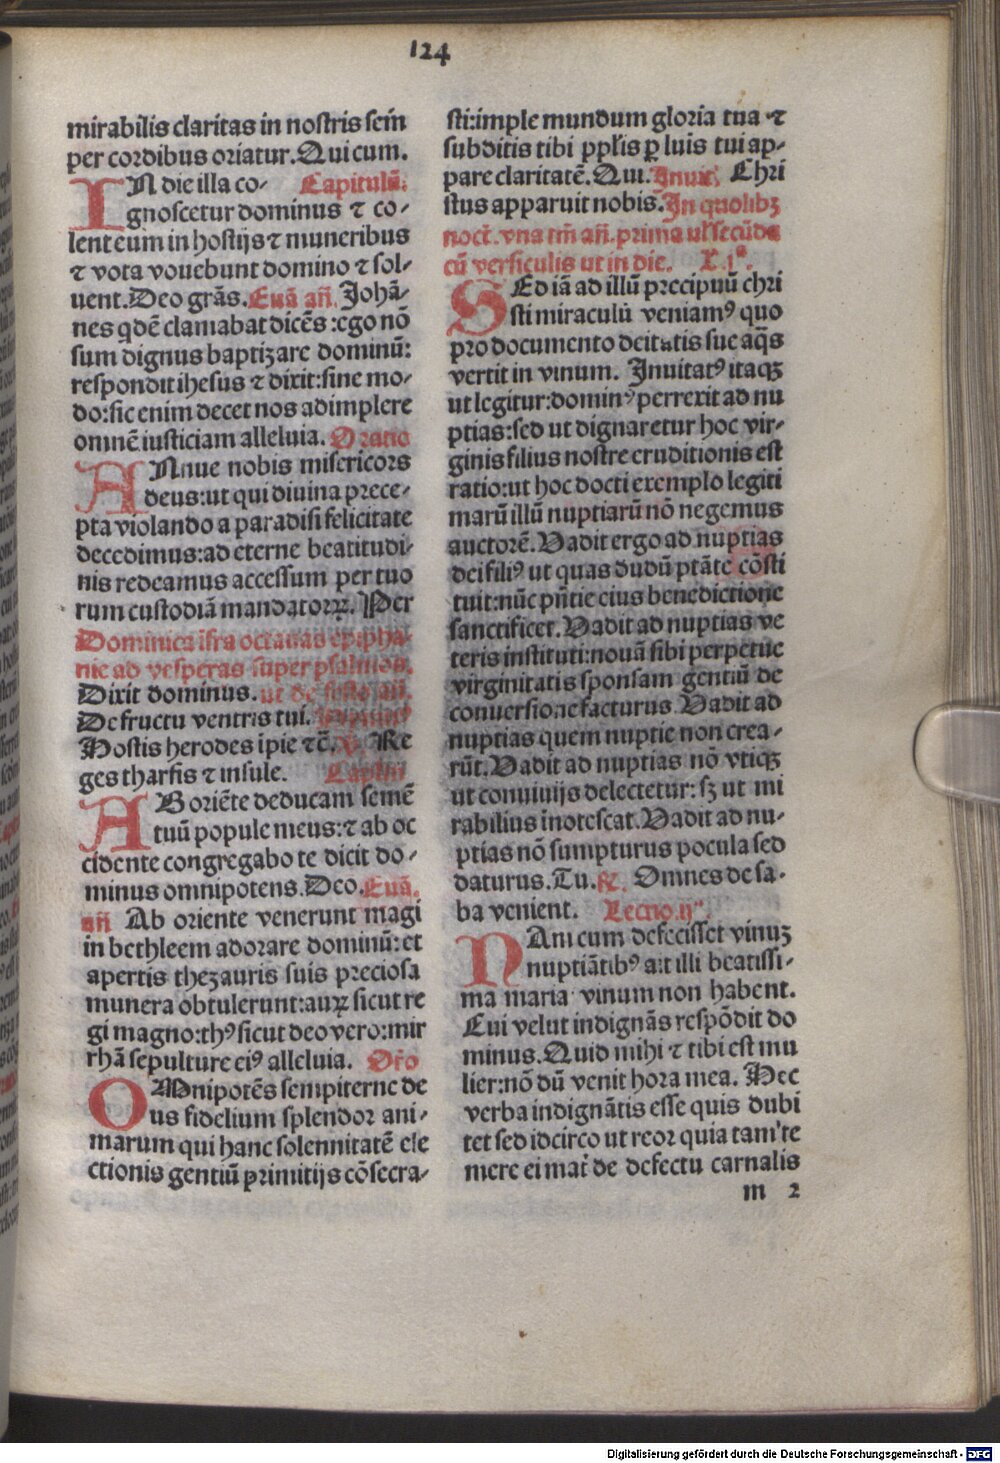 124
mirabilis claritas in nostris sem̄
per cordibus oriatur. Qui cum.
IN die illa co- Capitulū.
gnoscetur dominus ⁊ co-
lent eum in hostijs ⁊ muneribus
⁊ vota vouebunt domino ⁊ sol-
uent. Deo grās. Euā añ. Johā-
nes qdē clamabat dicēs: ego nō
sum dignus baptizare dominū:
respondit ihesus ⁊ dixit: sine mo-
do: sic enim decet nos adimplere
omnē iusticiam alleluia. Oratio
ANnue nobis misericors
deus: ut qui diuina prece-
pta violando a paradisi felicitate
decedimus: ad eterne beatitudi-
nis redeamus accessum per tuo
rum custodiā mandatoꝝ. Per
Dominica īfra octauas epipha-
nie ad vesperas super psalmos.
Dixit dominus. ut de festo añ.
De fructu ventris tui.
Hostis herodes īpie ⁊c̄. V. Re
ges tharsis ⁊ insule. Caplm
AB oriēte deducam semē
tuū popule meus: ⁊ ab oc
cidente congregabo te dicit do-
minus omnipotens. Deo. Euā.
añ Ab oriente venerunt magi
in bethleem adorare dominū: et
apertis thezauris suis preciosa
munera obtulerunt: auꝝ sicut re
gi magno: thꝰ sicut deo vero: mir
rhā sepulture eiꝰ alleluia. Or̄o
OMnipotēs sempiterne de
us fidelium splendor ani-
marum qui hanc solennitatē ele
ctionis gentiū primitijs cōsecra-
sti: imple mundum gloria tua ⁊
subditis tibi ppl'is ꝑ luīs tui ap-
pare claritatē. Qui. Inuit. Chri
stus apparuit nobis. In quolibꝫ
noct̄. vna tm̄ añ. prima ul' secūda
cū versiculis ut in die. L. jᵃ.
SEd iā ad illū precipuū chri
sti miraculū veniamꝰ quo
pro documento deitatis sue aq̄s
vertit in vinum. Inuitatꝰ itaqꝫ
ut legitur: dominꝰ perrexit ad nu
ptias: sed ut dignaretur hoc vir-
ginis filius nostre eruditionis est
ratio: ut hoc docti exemplo legiti
marū illū nuptiarū nō negemus
auctorē. Vadit ergo ad nuptias
dei filiꝰ ut quas dudū ptāte cōsti
tuit: nūc pn̄tie eius benedictione
sanctificet. Vadit ad nuptias ve
teris instituti: nouā sibi perpetue
virginitatis sponsam gentiū de
conuersione facturus. Vadit ad
nuptias quem nuptie non crea-
rūt. Vadit ad nuptias nō vtiqꝫ
ut conuiuijs delectetur: sꝫ ut mi
rabilius inotescat. Vadit ad nu-
ptias nō sumpturus pocula sed
daturus. Tu. ℟. Omnes de sa-
ba venient. Lectio ijᵃ.
NAm cum defecisset vinuꝫ
nuptiātibꝰ ait illi beatissi-
ma maria vinum non habent.
Cui velut indignās respōdit do
minus. Quid mihi ⁊ tibi est mu
lier: nō dū venit hora mea. Hec
verba indignātis esse quis dubi
tet sed idcirco ut reor quia tam' te
mere ei mat̄ de defectu carnalis
m 2
Digitalisierung gefördert durch die Deutsche Forschungsgemeinschaft - DFG